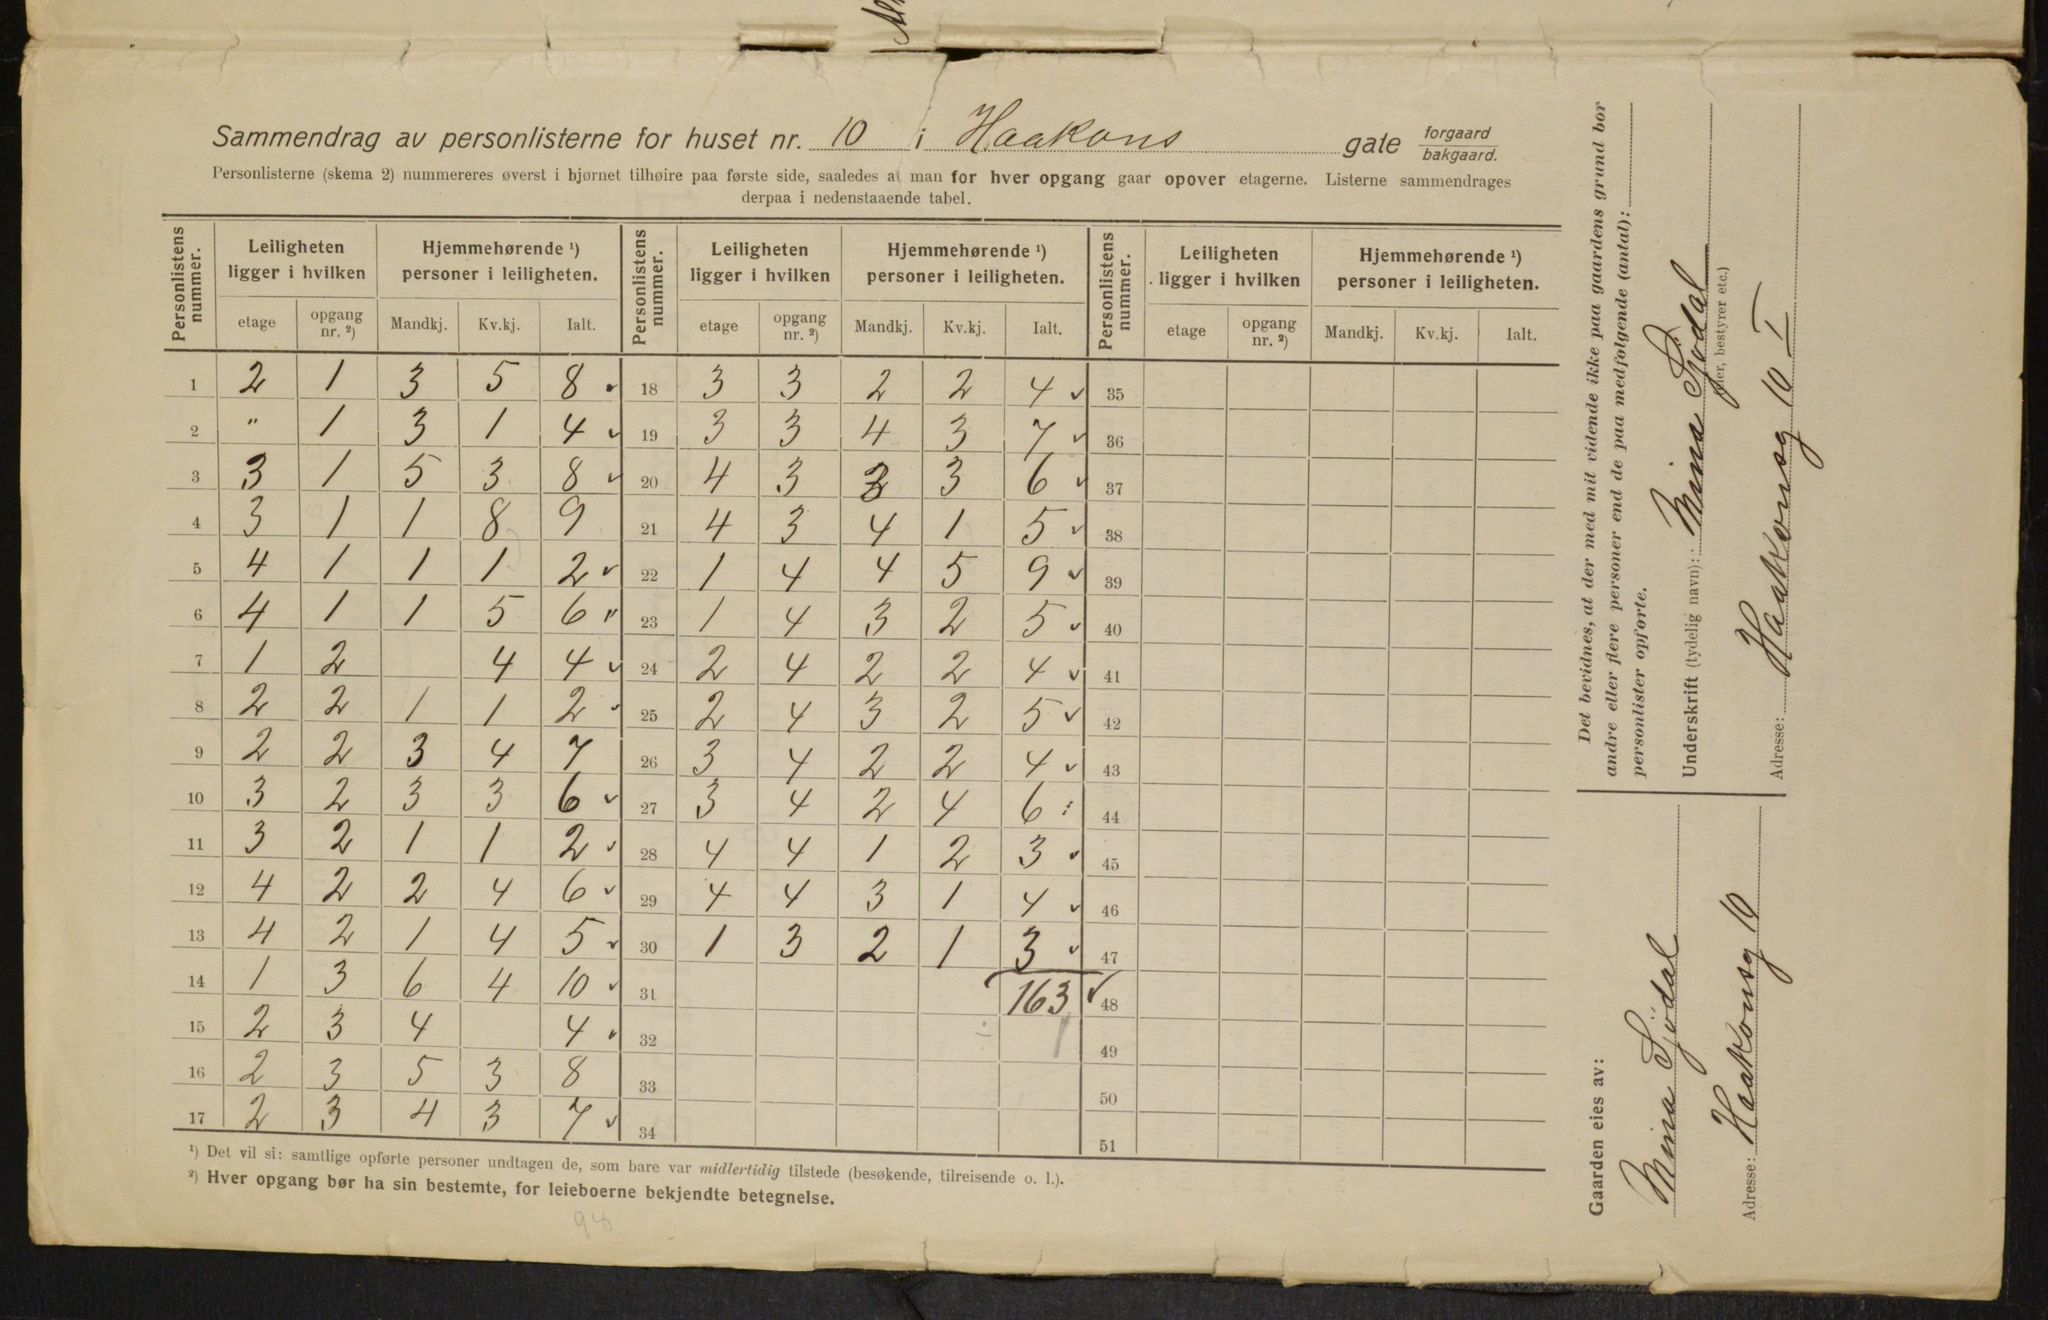 Sammendrag av personlisterne for huset nr. 10 i Haakons gate forgaard bakgaard.
Personlisterne (skema 2) nummereres øverst i hjørnet tilhøire paa første side, saaledes at man for hver opgang gaar opover etagerne. Listerne sammendrages
derpaa i nedenstaaende tabel.
Personlistens nummer. Leiligheten ligger i hvilken Hjemmehørende ¹) personer i leiligheten. Personlistens nummer. Leiligheten ligger i hvilken Hjemmehørende ¹) personer i leiligheten. Personlistens nummer. Leiligheten ligger i hvilken Hjemmehørende ¹) personer i leiligheten.
etage opgang nr. ²) Mandkj. Kv.kj. Ialt. etage opgang nr. ²) Mandkj. Kv.kj. Ialt. etage opgang nr. ²) Mandkj. Kv.kj. Ialt.
1 2 1 3 5 8 18 3 3 2 2 4 35
2 " 1 3 1 4 19 3 3 4 3 7 36
3 3 1 5 3 8 20 4 3 3 3 6 37
4 3 1 1 8 9 21 4 3 4 1 5 38
5 4 1 1 1 2 22 1 4 4 5 9 39
6 4 1 1 5 6 23 1 4 3 2 5 40
7 1 2 4 4 24 2 4 2 2 4 41
8 2 2 1 1 2 25 2 4 3 2 5 42
9 2 2 3 4 7 26 3 4 2 2 4 43
10 3 2 3 3 6 27 3 4 2 4 6 44
11 3 2 1 1 2 28 4 4 1 2 3 45
12 4 2 2 4 6 29 4 4 3 1 4 46
13 4 2 1 4 5 30 1 3 2 1 3 47
14 1 3 6 4 10 31 163 48
15 2 3 4 4 32 49
16 2 3 5 3 8 33 50
17 2 3 4 3 7 34 51
¹) Det vil si: samtlige opførte personer undtagen de, som bare var midlertidig tilstede (besøkende, tilreisende o. l.).
²) Hver opgang bør ha sin bestemte, for leieboerne bekjendte betegnelse.
98
Det bevidnes, at der med mit vidende ikke paa gaardens grund bor
andre eller flere personer end de paa medfølgende (antal):
personlister opførte.
Underskrift (tydelig navn): Mina Sjödal
(eier, bestyrer etc.)
Adresse: Haakonsg 10 I
Gaarden eies av:
Mina Sjödal
Adresse: Haakonsg 10